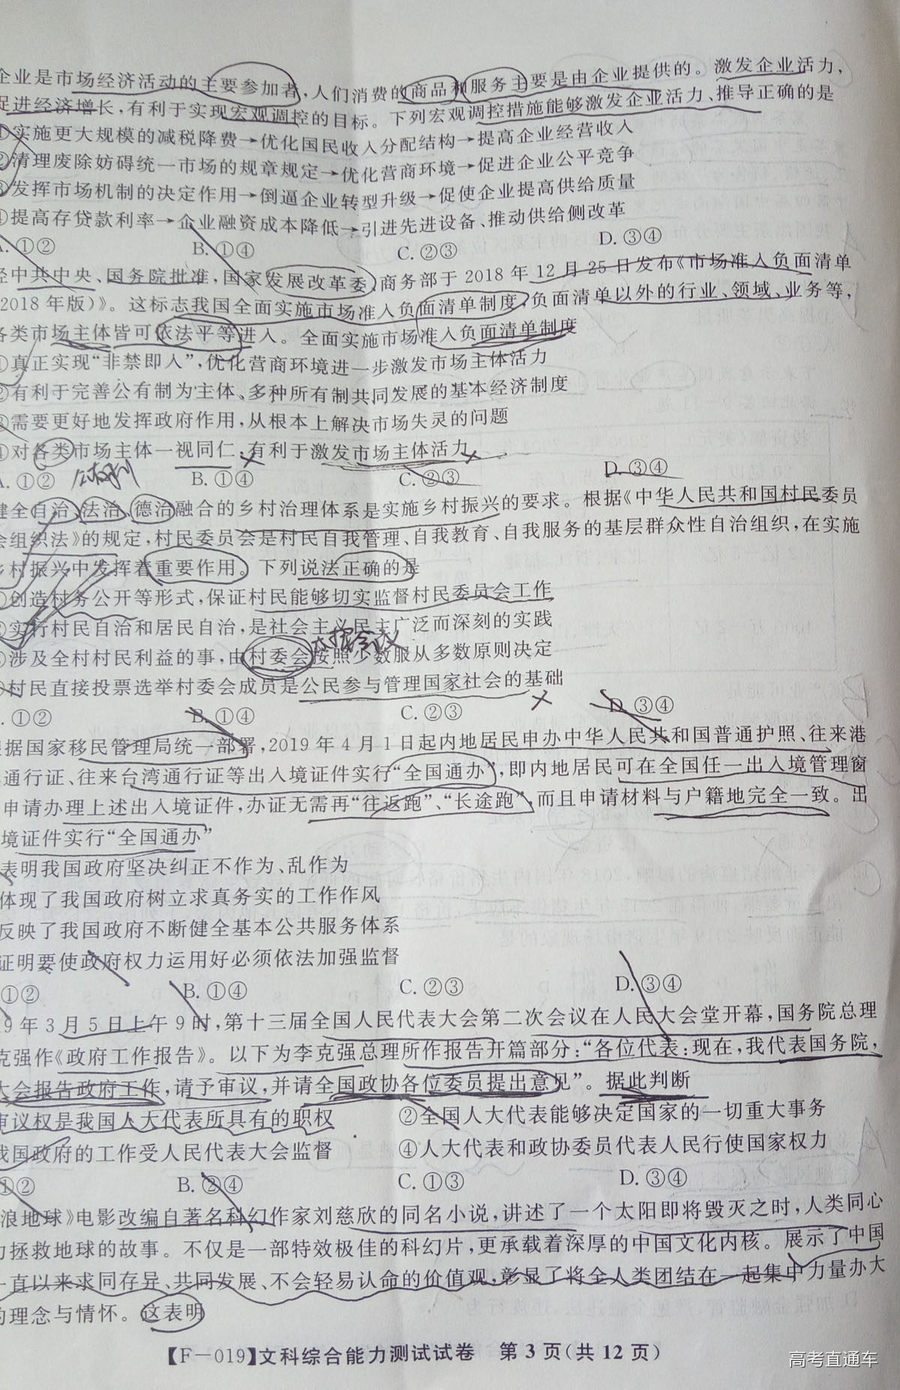 企业是市场经济活动的主要参加者,人们消费的商品和服务主要是由企业提供的。激发企业活力,
促进经济增长,有利于实现宏观调控的目标。下列宏观调控措施能够激发企业活力、推导正确的是
①实施更大规模的减税降费→优化国民收入分配结构→提高企业经营收入
②清理废除妨碍统一市场的规章规定→优化营商环境→促进企业公平竞争
③发挥市场机制的决定作用→倒逼企业转型升级→促使企业提高供给质量
④提高存贷款利率→企业融资成本降低→引进先进设备、推动供给侧改革
A. ①② B. ①④ C. ②③ D. ③④
经中共中央、国务院批准,国家发展改革委、商务部于 2018 年 12 月 25 日发布《市场准入负面清单
2018 年版)》。这标志我国全面实施市场准入负面清单制度,负面清单以外的行业、领域、业务等,
各类市场主体皆可依法平等进入。全面实施市场准入负面清单制度
①真正实现“非禁即入”,优化营商环境进一步激发市场主体活力
②有利于完善公有制为主体、多种所有制共同发展的基本经济制度
③需要更好地发挥政府作用,从根本上解决市场失灵的问题
④对各类市场主体一视同仁,有利于激发市场主体活力
. ①② B. ①④ C. ②③ D. ③④
健全自治、法治、德治融合的乡村治理体系是实施乡村振兴的要求。根据《中华人民共和国村民委员
会组织法》的规定,村民委员会是村民自我管理、自我教育、自我服务的基层群众性自治组织,在实施
乡村振兴中发挥着重要作用。下列说法正确的是
①创造村务公开等形式,保证村民能够切实监督村民委员会工作
②实行村民自治和居民自治,是社会主义民主广泛而深刻的实践
③涉及全村村民利益的事,由村委会按照少数服从多数原则决定
④村民直接投票选举村委会成员是公民参与管理国家社会的基础
. ①② B. ①④ C. ②③ D. ③④
根据国家移民管理局统一部署,2019 年 4 月 1 日起内地居民申办中华人民共和国普通护照、往来港
通行证、往来台湾通行证等出入境证件实行“全国通办”,即内地居民可在全国任一出入境管理窗
申请办理上述出入境证件,办证无需再“往返跑”、“长途跑”,而且申请材料与户籍地完全一致。出
境证件实行“全国通办”
表明我国政府坚决纠正不作为、乱作为
体现了我国政府树立求真务实的工作作风
反映了我国政府不断健全基本公共服务体系
证明要使政府权力运用好必须依法加强监督
①② B. ①④ C. ②③ D. ③④
9 年 3 月 5 日上午 9 时,第十三届全国人民代表大会第二次会议在人民大会堂开幕,国务院总理
克强作《政府工作报告》。以下为李克强总理所作报告开篇部分:“各位代表:现在,我代表国务院,
大会报告政府工作,请予审议,并请全国政协各位委员提出意见”。据此判断
审议权是我国人大代表所具有的职权 ②全国人大代表能够决定国家的一切重大事务
我国政府的工作受人民代表大会监督 ④人大代表和政协委员代表人民行使国家权力
①② B. ②④ C. ①③ D. ③④
浪地球》电影改编自著名科幻作家刘慈欣的同名小说,讲述了一个太阳即将毁灭之时,人类同心
力拯救地球的故事。不仅是一部特效极佳的科幻片,更承载着深厚的中国文化内核。展示了中国
一直以来求同存异、共同发展、不会轻易认命的价值观,彰显了将全人类团结在一起集中力量办大
的理念与情怀。这表明
【F－019】文科综合能力测试试卷 第 3 页(共 12 页)
高考直通车